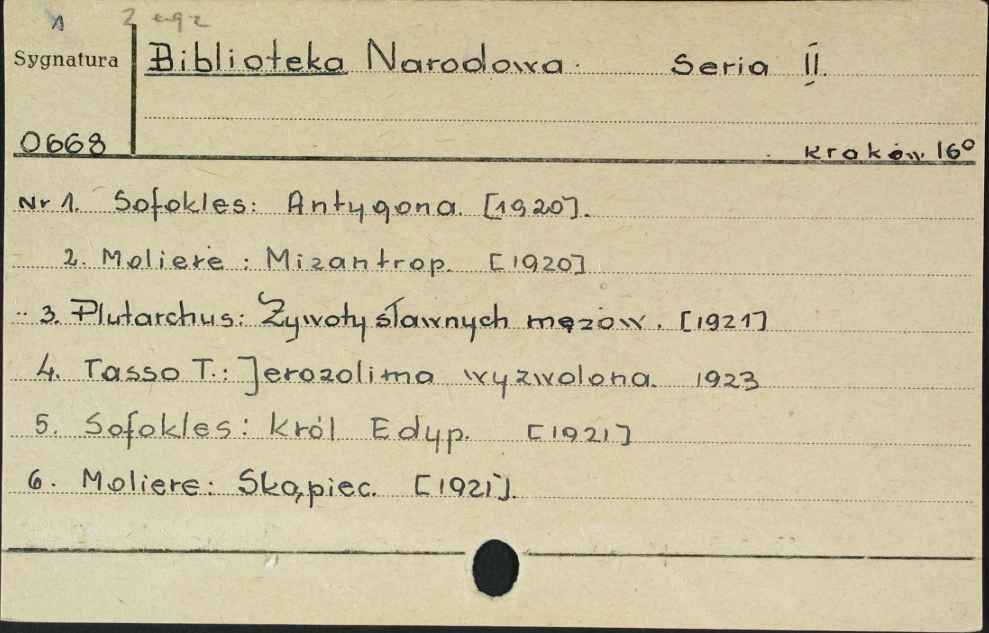 1 2 egz
Sygnatura Biblioteka Narodowa. Seria II.
0668 Kraków 16°
Nr 1. Sofokles: Antygona. [1920].
2. Moliere: Mizantrop. [1920]
3. Plutarchus: Żywoty sławnych mężów. [1921]
4. Tasso T.: Jerozolima wyzwolona. 1923
5. Sofokles: Król Edyp. [1921]
6. Moliere: Skąpiec. [1921].